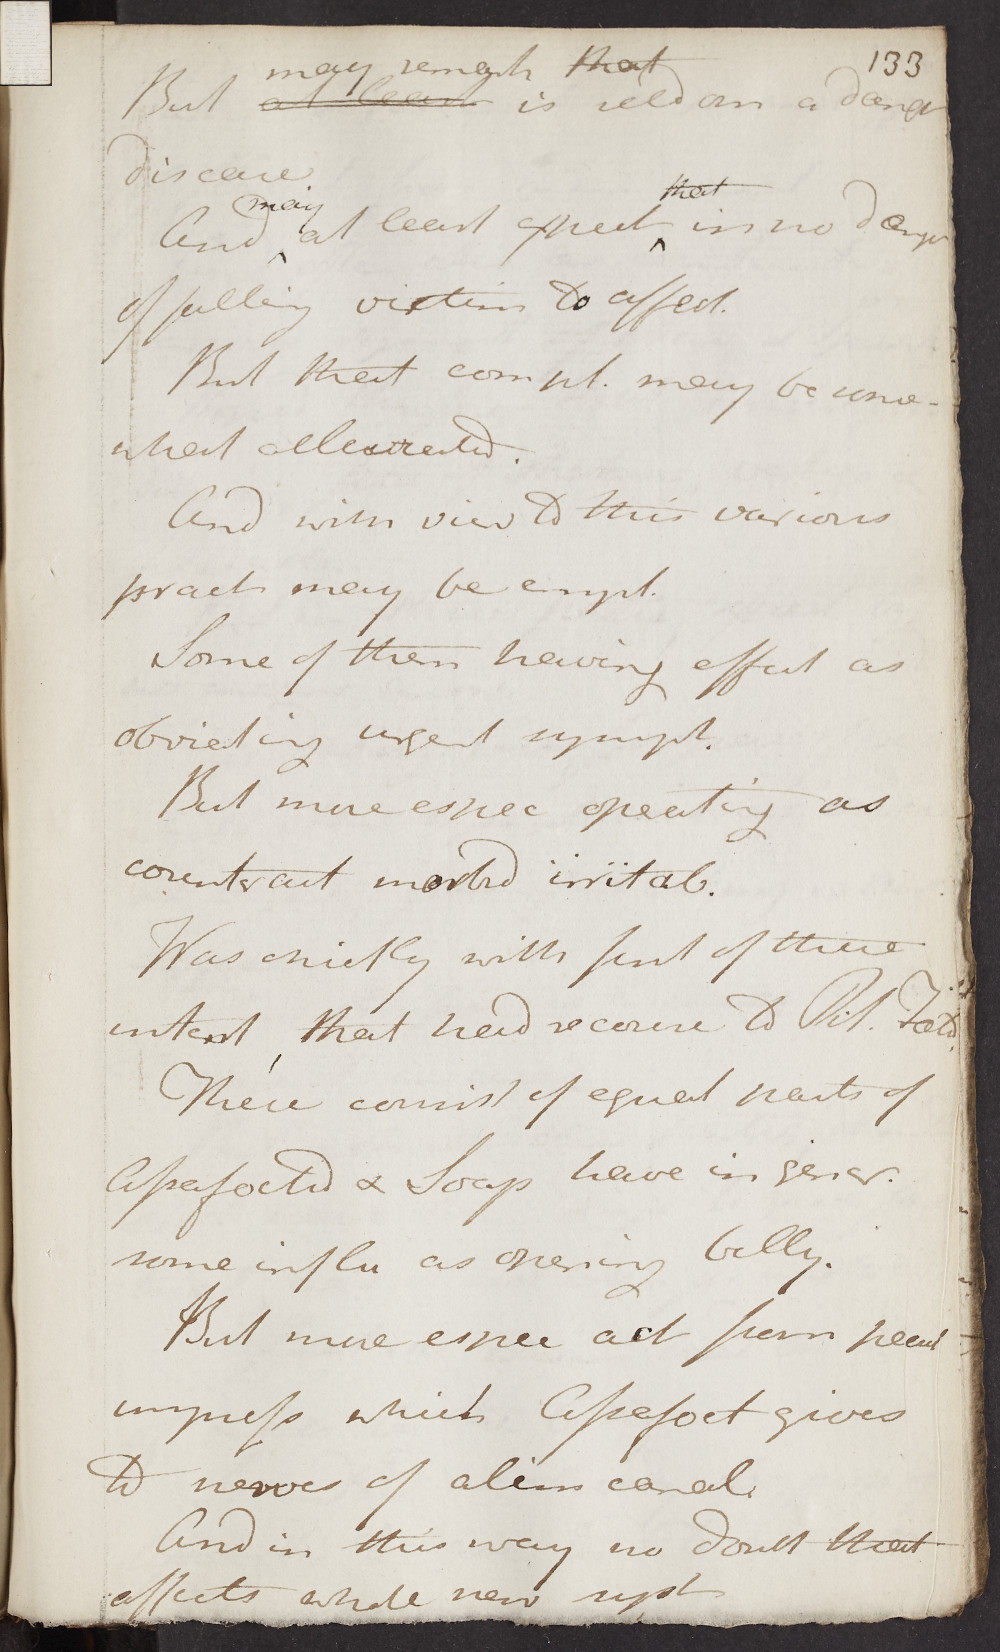 133
may remark that
But at least is seldom a danger
disease
And may at least expect that is in no danger
of falling victim to affect.
But that compl. may be some-
what alleviated.
And with view to this various
pract may be empl.
Some of them having effect as
obviating urgent sympt.
But more espec operating as
counteract morbid irritab.
Was chiefly with first of these
intent, that had recourse to Pil. Foetid.
These consist of equal parts of
Assafoetid & Soap have in gener.
some influ as opening belly.
But more espec act from pecul
impress which Assafoet gives
to nerves of alim canal.
And in this way no doubt that
affects whole nerv syst